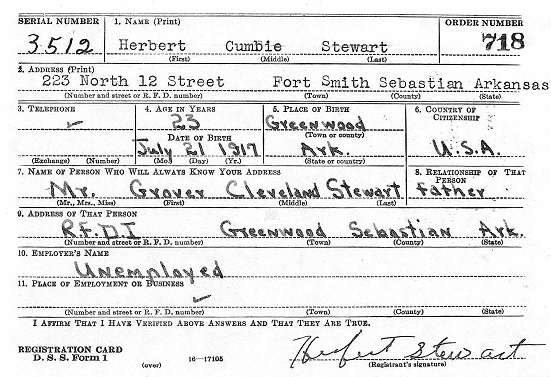 SERIAL NUMBER 1. NAME (Print) ORDER NUMBER
3512 Herbert Cumbie Stewart 718
(First) (Middle) (Last)
2. ADDRESS (Print)
223 North 12 Street Fort Smith Sebastian Arkansas
(Number and street or R. F. D. number) (Town) (County) (State)
3. TELEPHONE 4. AGE IN YEARS 5. PLACE OF BIRTH 6. COUNTRY OF CITIZENSHIP
✓ 23 Greenwood
(Town or county)
DATE OF BIRTH
July 21 1917 Ark. U.S.A.
(Exchange) (Number) (Mo.) (Day) (Yr.) (State or country)
7. NAME OF PERSON WHO WILL ALWAYS KNOW YOUR ADDRESS 8. RELATIONSHIP OF THAT PERSON
Mr. Grover Cleveland Stewart Father
(Mr., Mrs., Miss) (First) (Middle) (Last)
9. ADDRESS OF THAT PERSON
R.F.D.1 Greenwood Sebastian Ark.
(Number and street or R. F. D. number) (Town) (County) (State)
10. EMPLOYER'S NAME
Unemployed
11. PLACE OF EMPLOYMENT OR BUSINESS
✓
(Number and street or R. F. D. number) (Town) (County) (State)
I AFFIRM THAT I HAVE VERIFIED ABOVE ANSWERS AND THAT THEY ARE TRUE.
REGISTRATION CARD
D. S. S. Form 1 (over) 16—17105 Herbert Stewart
(Registrant's signature)